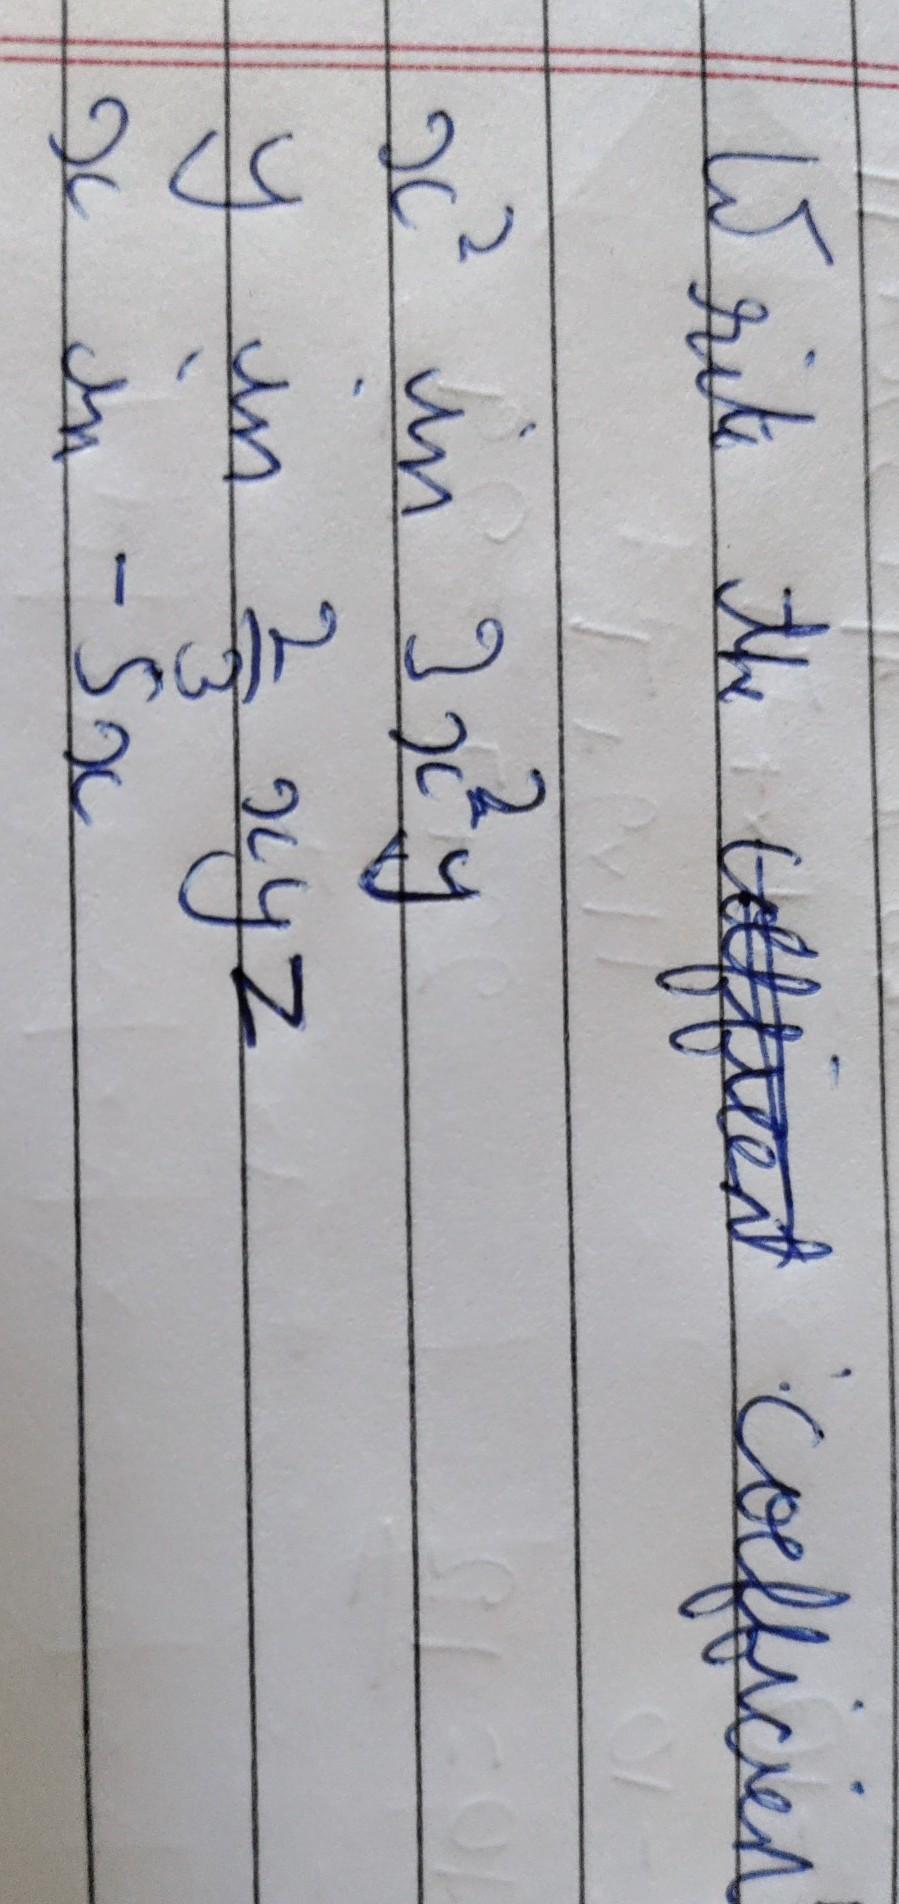 Write the coefficien
x² in 3x²y
y in 2/3 xyz
x in -5x